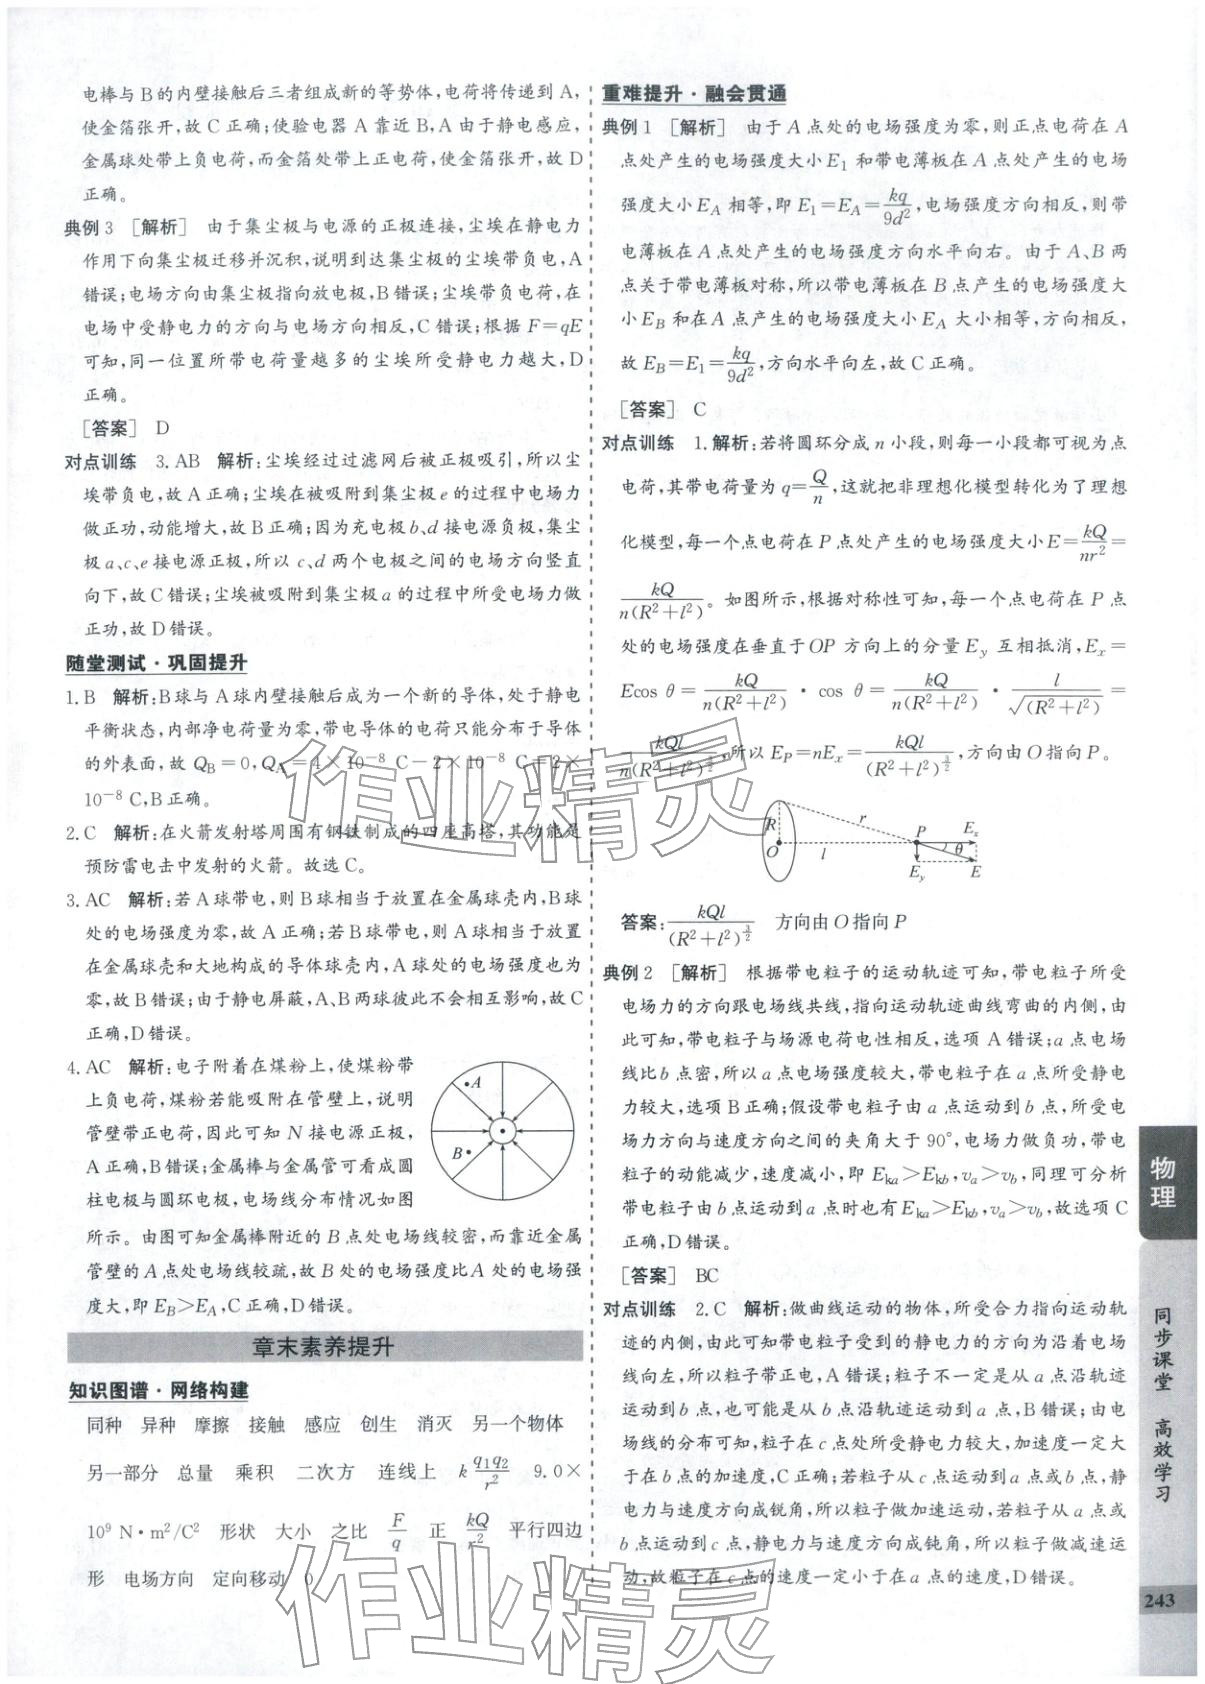 电棒与B的内壁接触后三者组成新的等势体,电荷将传递到A,
使金箔张开,故C正确;使验电器A靠近B,A由于静电感应,
金属球处带上负电荷,而金箔处带上正电荷,使金箔张开,故D
正确。
典例3 [解析] 由于集尘极与电源的正极连接,尘埃在静电力
作用下向集尘极迁移并沉积,说明到达集尘极的尘埃带负电,A
错误;电场方向由集尘极指向放电极,B错误;尘埃带负电荷,在
电场中受静电力的方向与电场方向相反,C错误;根据F=qE
可知,同一位置所带电荷量越多的尘埃所受静电力越大,D
正确。
[答案] D
对点训练 3.AB 解析:尘埃经过过滤网后被正极吸引,所以尘
埃带负电,故A正确;尘埃在被吸附到集尘极e的过程中电场力
做正功,动能增大,故B正确;因为充电极b、d接电源负极,集尘
极a、c、e接电源正极,所以c、d两个电极之间的电场方向竖直
向下,故C错误;尘埃被吸附到集尘极a的过程中所受电场力做
正功,故D错误。
随堂测试·巩固提升
1.B 解析:B球与A球内壁接触后成为一个新的导体,处于静电
平衡状态,内部净电荷量为零,带电导体的电荷只能分布于导体
的外表面,故Q_B=0,Q_A=4×10⁻⁸ C-2×10⁻⁸ C=2×
10⁻⁸ C,B正确。
2.C 解析:在火箭发射塔周围有钢铁制成的四座高塔,其功能是
预防雷电击中发射的火箭。故选C。
3.AC 解析:若A球带电,则B球相当于放置在金属球壳内,B球
处的电场强度为零,故A正确;若B球带电,则A球相当于放置
在金属球壳和大地构成的导体球壳内,A球处的电场强度也为
零,故B错误;由于静电屏蔽,A、B两球彼此不会相互影响,故C
正确,D错误。
4.AC 解析:电子附着在煤粉上,使煤粉带
上负电荷,煤粉若能吸附在管壁上,说明
管壁带正电荷,因此可知N接电源正极,
A正确,B错误;金属棒与金属管可看成圆
柱电极与圆环电极,电场线分布情况如图
所示。由图可知金属棒附近的B点处电场线较密,而靠近金属
管壁的A点处电场线较疏,故B处的电场强度比A处的电场强
度大,即E_B>E_A,C正确,D错误。
A
B
章末素养提升
知识图谱·网络构建
同种 异种 摩擦 接触 感应 创生 消灭 另一个物体
另一部分 总量 乘积 二次方 连线上 k q₁q₂/r² 9.0×
10⁹ N·m²/C² 形状 大小 之比 F/q 正 kQ/r² 平行四边
形 电场方向 定向移动 0
重难提升·融会贯通
典例1 [解析] 由于A点处的电场强度为零,则正点电荷在A
点处产生的电场强度大小E₁和带电薄板在A点处产生的电场
强度大小E_A相等,即E₁=E_A=kq/9d²,电场强度方向相反,则带
电薄板在A点处产生的电场强度方向水平向右。由于A、B两
点关于带电薄板对称,所以带电薄板在B点产生的电场强度大
小E_B和在A点产生的电场强度大小E_A大小相等,方向相反,
故E_B=E₁=kq/9d²,方向水平向左,故C正确。
[答案] C
对点训练 1.解析:若将圆环分成n小段,则每一小段都可视为点
电荷,其带电荷量为q=Q/n,这就把非理想化模型转化为了理想
化模型,每一个点电荷在P点处产生的电场强度大小E=kQ/nr²=
kQ/n(R²+l²)。如图所示,根据对称性可知,每一个点电荷在P点
处的电场强度在垂直于OP方向上的分量E_y互相抵消,E_x=
Ecos θ=kQ/n(R²+l²)·cos θ=kQ/n(R²+l²)·l/√(R²+l²)=
kQl/n(R²+l²)^(3/2),所以E_P=nE_x=kQl/(R²+l²)^(3/2),方向由O指向P。
R
O
r
l
P
E_x
θ
E_y
E
答案:kQl/(R²+l²)^(3/2) 方向由O指向P
典例2 [解析] 根据带电粒子的运动轨迹可知,带电粒子所受
电场力的方向跟电场线共线,指向运动轨迹曲线弯曲的内侧,由
此可知,带电粒子与场源电荷电性相反,选项A错误;a点电场
线比b点密,所以a点电场强度较大,带电粒子在a点所受静电
力较大,选项B正确;假设带电粒子由a点运动到b点,所受电
场力方向与速度方向之间的夹角大于90°,电场力做负功,带电
粒子的动能减少,速度减小,即E_ka>E_kb,v_a>v_b,同理可分析
带电粒子由b点运动到a点时也有E_ka>E_kb,v_a>v_b,故选项C
正确,D错误。
[答案] BC
对点训练 2.C 解析:做曲线运动的物体,所受合力指向运动轨迹
的内侧,由此可知带电粒子受到的静电力的方向为沿着电场
线向左,所以粒子带正电,A错误;粒子不一定是从a点沿轨迹
运动到b点,也可能是从b点沿轨迹运动到a点,B错误;由电
场线的分布可知,粒子在c点处所受静电力较大,加速度一定大
于在b点的加速度,C正确;若粒子从c点运动到a点或b点,静
电力与速度方向成锐角,所以粒子做加速运动,若粒子从a点或
b点运动到c点,静电力与速度方向成钝角,所以粒子做减速运
动,故粒子在c点的速度一定小于在a点的速度,D错误。
物理
同步课堂 高效学习
243
作业精灵
作业精灵